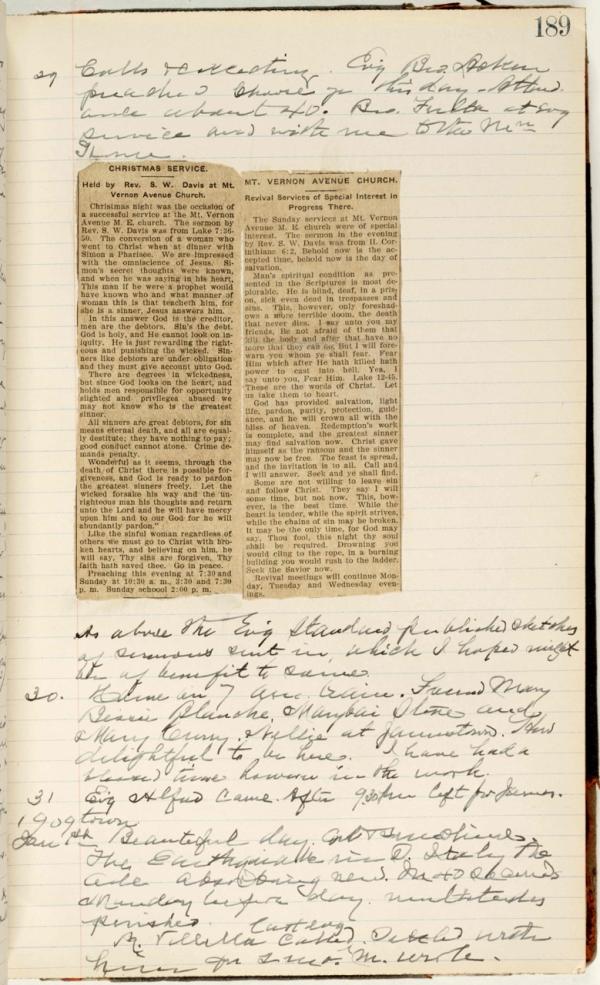 189
29 Calls & meeting. Evg Bro.
preached
about 40. Bro. at Evg
service and with me to the
Home.
CHRISTMAS SERVICE.
Held by Rev. S. W. Davis at Mt.
Vernon Avenue Church.
Christmas night was the occasion of
a successful service at the Mt. Vernon
Avenue M. E. church. The sermon by
Rev. S. W. Davis was from Luke 7:36-
50. The conversion of a woman who
went to Christ when at dinner with
Simon a Pharisee. We are impressed
with the omniscience of Jesus. Si-
mon's secret thoughts were known,
and when he was saying in his heart,
This man if he were a prophet would
have known who and what manner of
woman this is that toucheth him, for
she is a sinner, Jesus answers him.
In this answer God is the creditor,
men are the debtors. Sin's the debt.
God is holy, and He cannot look on in-
iquity. He is just rewarding the right-
eous and punishing the wicked. Sin-
ners like debtors are under obligation
and they must give account unto God.
There are degrees in wickedness,
but since God looks on the heart, and
holds men responsible for opportunity
slighted and privileges abused we
may not know who is the greatest
sinner.
All sinners are great debtors, for sin
means eternal death, and all are equal-
ly destitute; they have nothing to pay;
good conduct cannot atone. Crime de-
mands penalty.
Wonderful as it seems, through the
death of Christ there is possible for-
giveness, and God is ready to pardon
the greatest sinners freely. Let the
wicked forsake his way and the un-
righteous man his thoughts and return
unto the Lord and he will have mercy
upon him and to our God for he will
abundantly pardon."
Like the sinful woman regardless of
others we must go to Christ with bro-
ken hearts, and believing on him, he
will say, Thy sins are forgiven, Thy
faith hath saved thee. Go in peace.
Preaching this evening at 7:30 and
Sunday at 10:30 a. m., 3:30 and 7:30
p. m. Sunday school 2:00 p. m.
MT. VERNON AVENUE CHURCH.
Revival Services of Special Interest in
Progress There.
The Sunday services at Mt. Vernon
Avenue M. E. church were of special
interest. The sermon in the evening
by Rev. S. W. Davis was from II. Cor-
inthians 6:2, Behold now is the ac-
cepted time, behold now is the day of
salvation.
Man's spiritual condition as pre-
sented in the Scriptures is most de-
plorable. He is blind, deaf, in a pris-
on, sick even dead in trespasses and
sins. This, however, only foreshad-
ows a more terrible doom, the death
that never dies. I say unto you my
friends, Be not afraid of them that
kill the body and after that have no
more that they can do, But I will fore-
warn you whom ye shall fear. Fear
Him which after He hath killed hath
power to cast into hell. Yea, I
say unto you, Fear Him. Luke 12-45.
These are the words of Christ. Let
us take them to heart.
God has provided salvation, light
life, pardon, purity, protection, guid-
ance, and he will crown all with the
bliss of heaven. Redemption's work
is complete, and the greatest sinner
may find salvation now. Christ gave
himself as the ransom and the sinner
may now be free. The feast is spread,
and the invitation is to all. Call and
I will answer. Seek and ye shall find.
Some are not willing to leave sin
and follow Christ. They say I will
some time, but not now. This, how-
ever, is the best time. While the
heart is tender, while the spirit strives,
while the chains of sin may be broken.
It may be the only time, for God may
say, Thou fool, this night thy soul
shall be required. Drowning you
would cling to the rope, in a burning
building you would rush to the ladder.
Seek the Savior now.
Revival meetings will continue Mon-
day, Tuesday and Wednesday even-
ings.
As above the Evg Standard published sketches
of sermons sent in, which I hoped might
be of benefit to some.
30. Home on 7 a.m. train. Found Mary
Bessie Blanche, Stone and
Mary Curry. Nellie at Jamestown. How
delightful to be here. I have had a
blessed time however in the work.
31 Evg Alfred came. After 9:30 pm left for James-
town
1909
Jan 1st Beautiful day.
The Earthquake in S. Italy the
absorbing news. In 40 seconds
Monday before day, multitudes
perished.
last evg
M. called. with
him M. wrote.